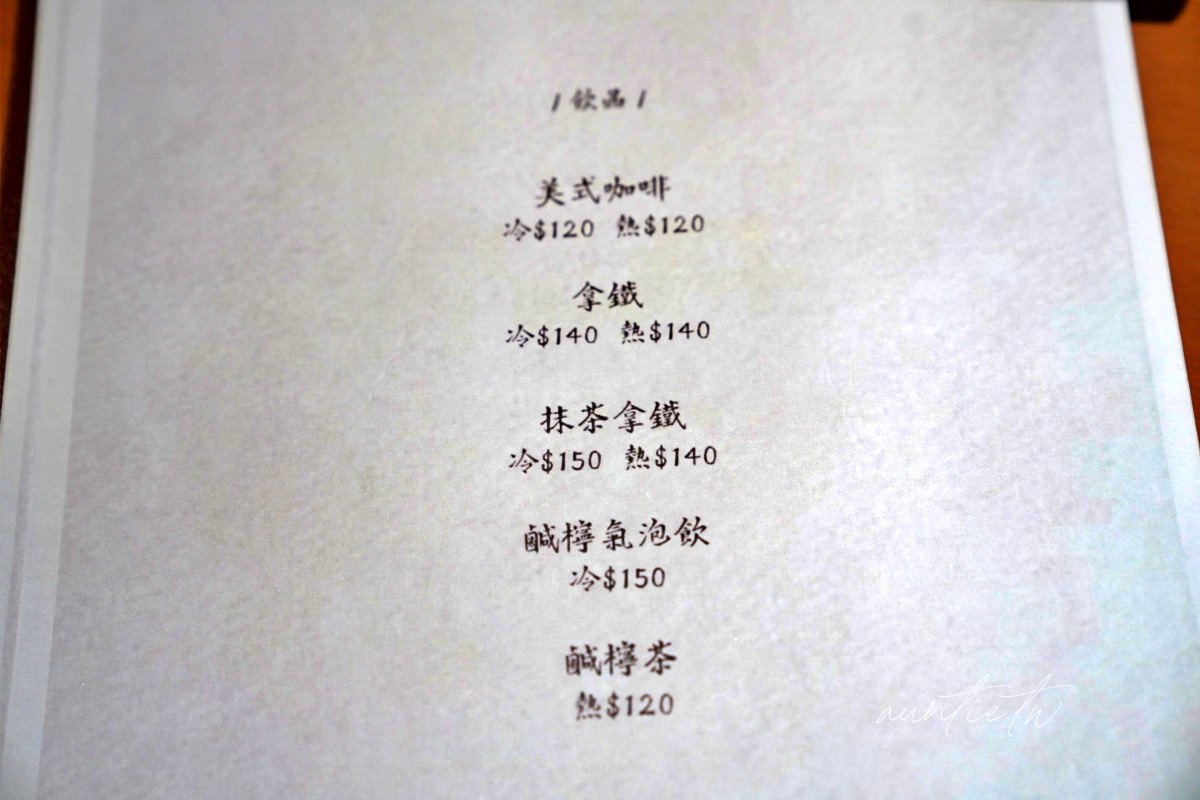 / 飲品 /
美式咖啡
冷$120 熱$120
拿鐵
冷$140 熱$140
抹茶拿鐵
冷$150 熱$140
鹹檸氣泡飲
冷$150
鹹檸茶
熱$120
auntie.tw